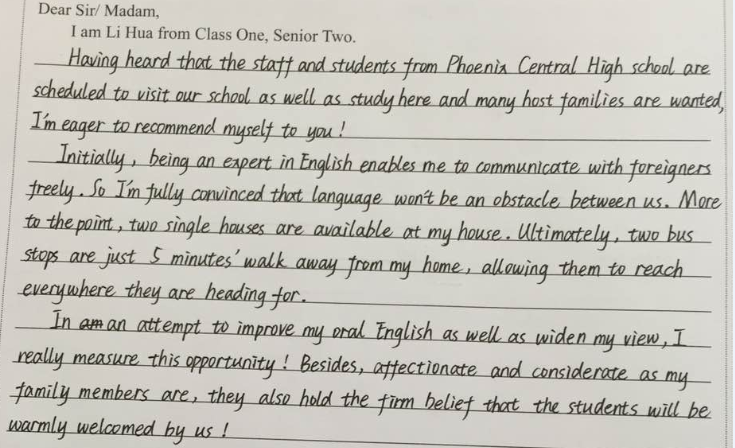 Dear Sir/ Madam,
I am Li Hua from Class One, Senior Two.
Having heard that the staff and students from Phoenix Central High school are
scheduled to visit our school as well as study here and many host families are wanted,
I'm eager to recommend myself to you !
Initially, being an expert in English enables me to communicate with foreigners
freely. So I'm fully convinced that language won't be an obstacle between us. More
to the point, two single houses are available at my house. Ultimately, two bus
stops are just 5 minutes' walk away from my home, allowing them to reach
everywhere they are heading for.
In an attempt to improve my oral English as well as widen my view, I
really measure this opportunity ! Besides, affectionate and considerate as my
family members are, they also hold the firm belief that the students will be
warmly welcomed by us !